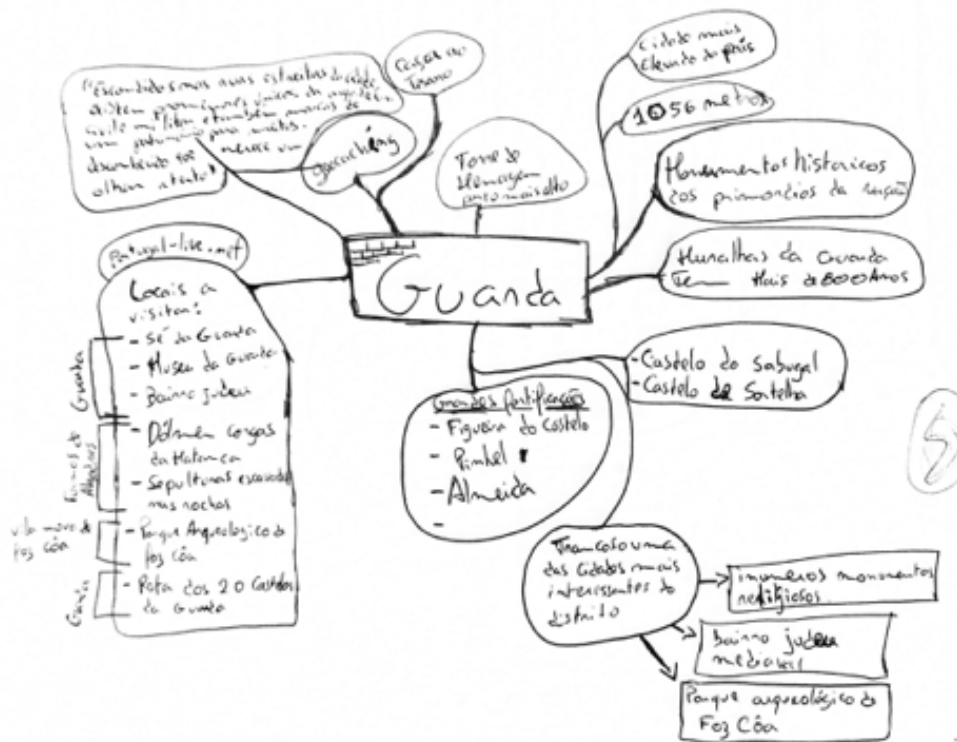 "Escondidos nas ruas estreitas da cidade
existem promenores únicos da arquitetura
civil e militar e também marcos de
um património para muitos
desconhecido que merece um
olhar atento"
Caças ao
Tesouro
geocaching
Torre de
Menagem
ponto mais alto
Cidade mais
Elevada do país
1056 metros
Monumentos historicos
dos primordios da nação
Muralhas da Guarda
Tem Mais de 800 Anos
Guarda
Portugal-live.net
Locais a
visitar:
- Sé da Guarda
- Museu da Guarda
- Bairro judeu
- Dólmen corgas
da Matança
- Sepulturas escavadas
nas rochas
- Parque Arqueológico do
foz Côa
- Rota dos 20 Castelos
da Guarda
Guarda
Fornos de
Algodres
vila nova de
foz côa
Guarda
Grandes fortificações
- Figueira do Castelo
- Pinhel
- Almeida
-
- Castelo do Sabugal
- Castelo de Sortelha
Trancoso uma
das Cidades mais
interessantes do
distrito
inumeros monumentos
religiosos
Bairro judeu
medieval
Parque arqueológico do
Foz Côa
5